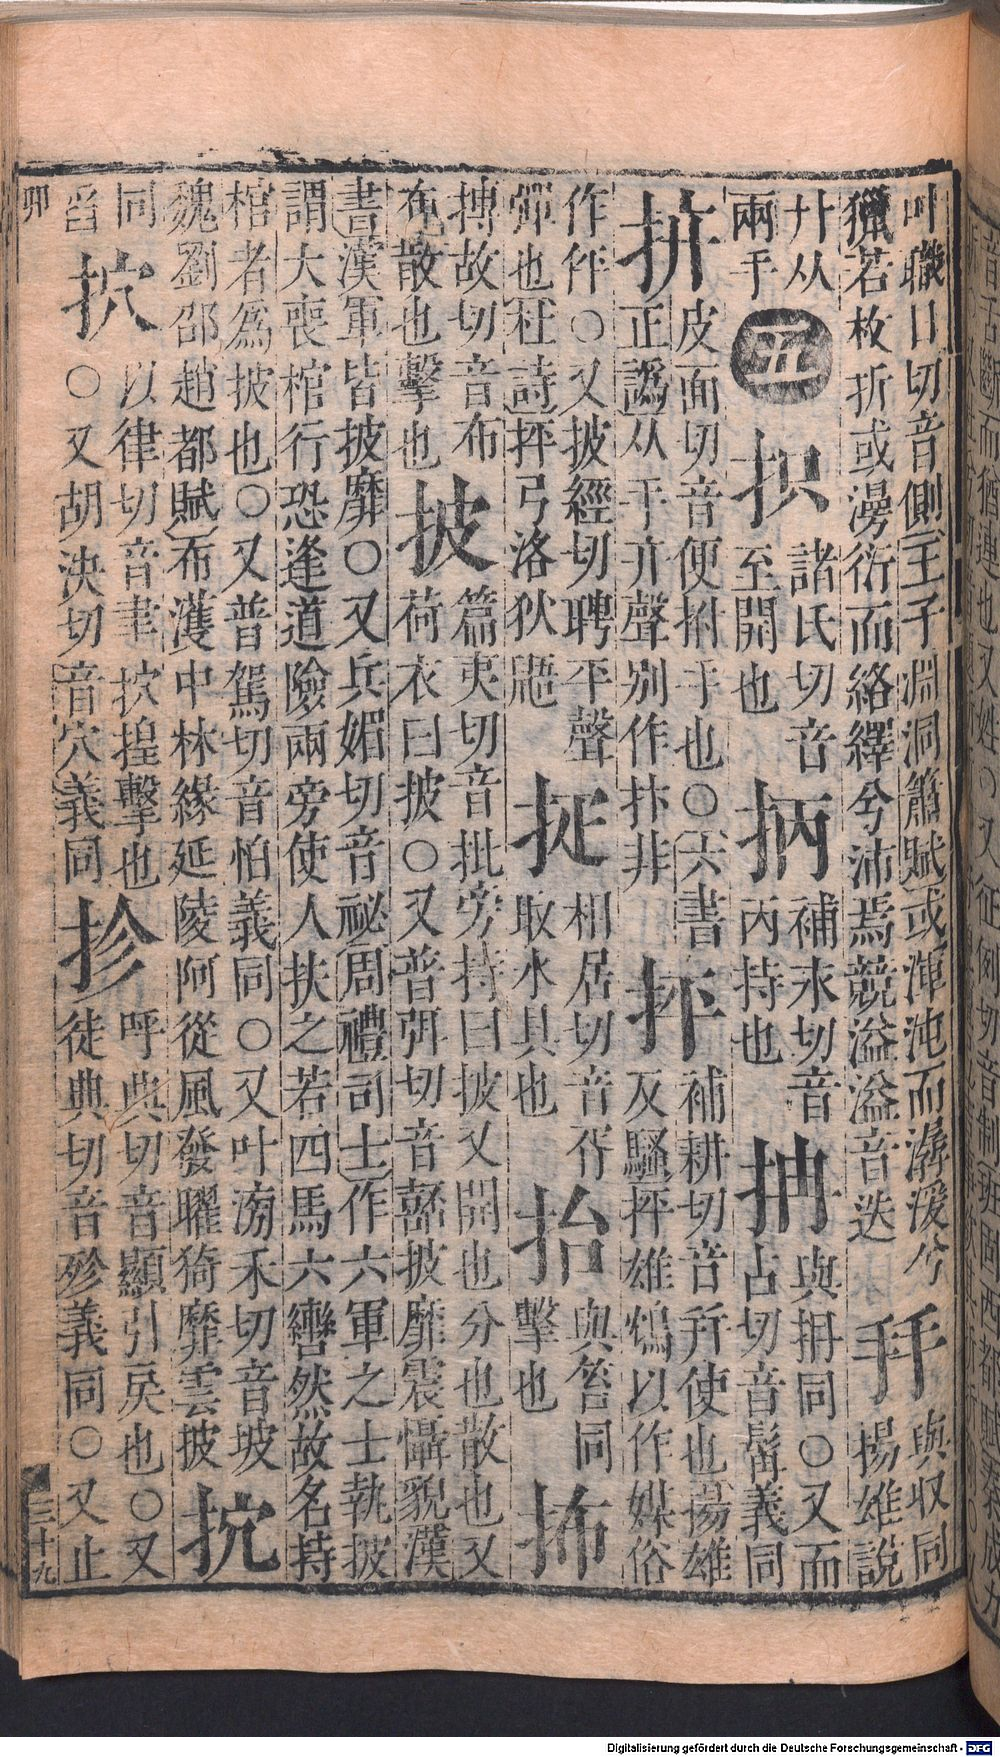 叶職日切音側王子淵洞簫賦或渾沌而潺湲兮
獵若枚折或漫衍而絡繹兮沛焉競溢溢音迭
𢪒與収同
揚雄說
廾从
兩手
五
抧諸氏切音
至開也
抦補永切音
丙持也
抩與抩同○又而
占切音髥義同
拚皮面切音便拊手也○六書
正譌从手弁聲別作抃非
抨補耕切音所使也揚雄
反騷抨雄鴆以作媒俗
作伻○又披經切聘平聲
彈也杜詩抨弓洛狄
相居切音胥
取水具也
抬與笞同
擊也
抪
搏故切音布
布散也擊也
披篇夷切音批旁持曰披又開也分也散也又
荷衣曰披○又普弭切音嚭披靡震懾貌漢
書漢軍皆披靡○又兵媚切音祕周禮司士作六軍之士執披
謂大喪棺行恐逢道險兩旁使人扶之若四馬六轡然故名持
棺者爲披也○又普駕切音怕義同○又叶滂禾切音坡
魏劉邵趙都賦布濩中林緣延陵阿從風發曜猗靡雲披
抭
同
舀
㧒以律切音聿㧒揘擊也
○又胡決切音穴義同
抮呼典切音顯引戾也○又
徒典切音殄義同○又止
卯
三十九
Digitalisierung gefördert durch die Deutsche Forschungsgemeinschaft - DFG